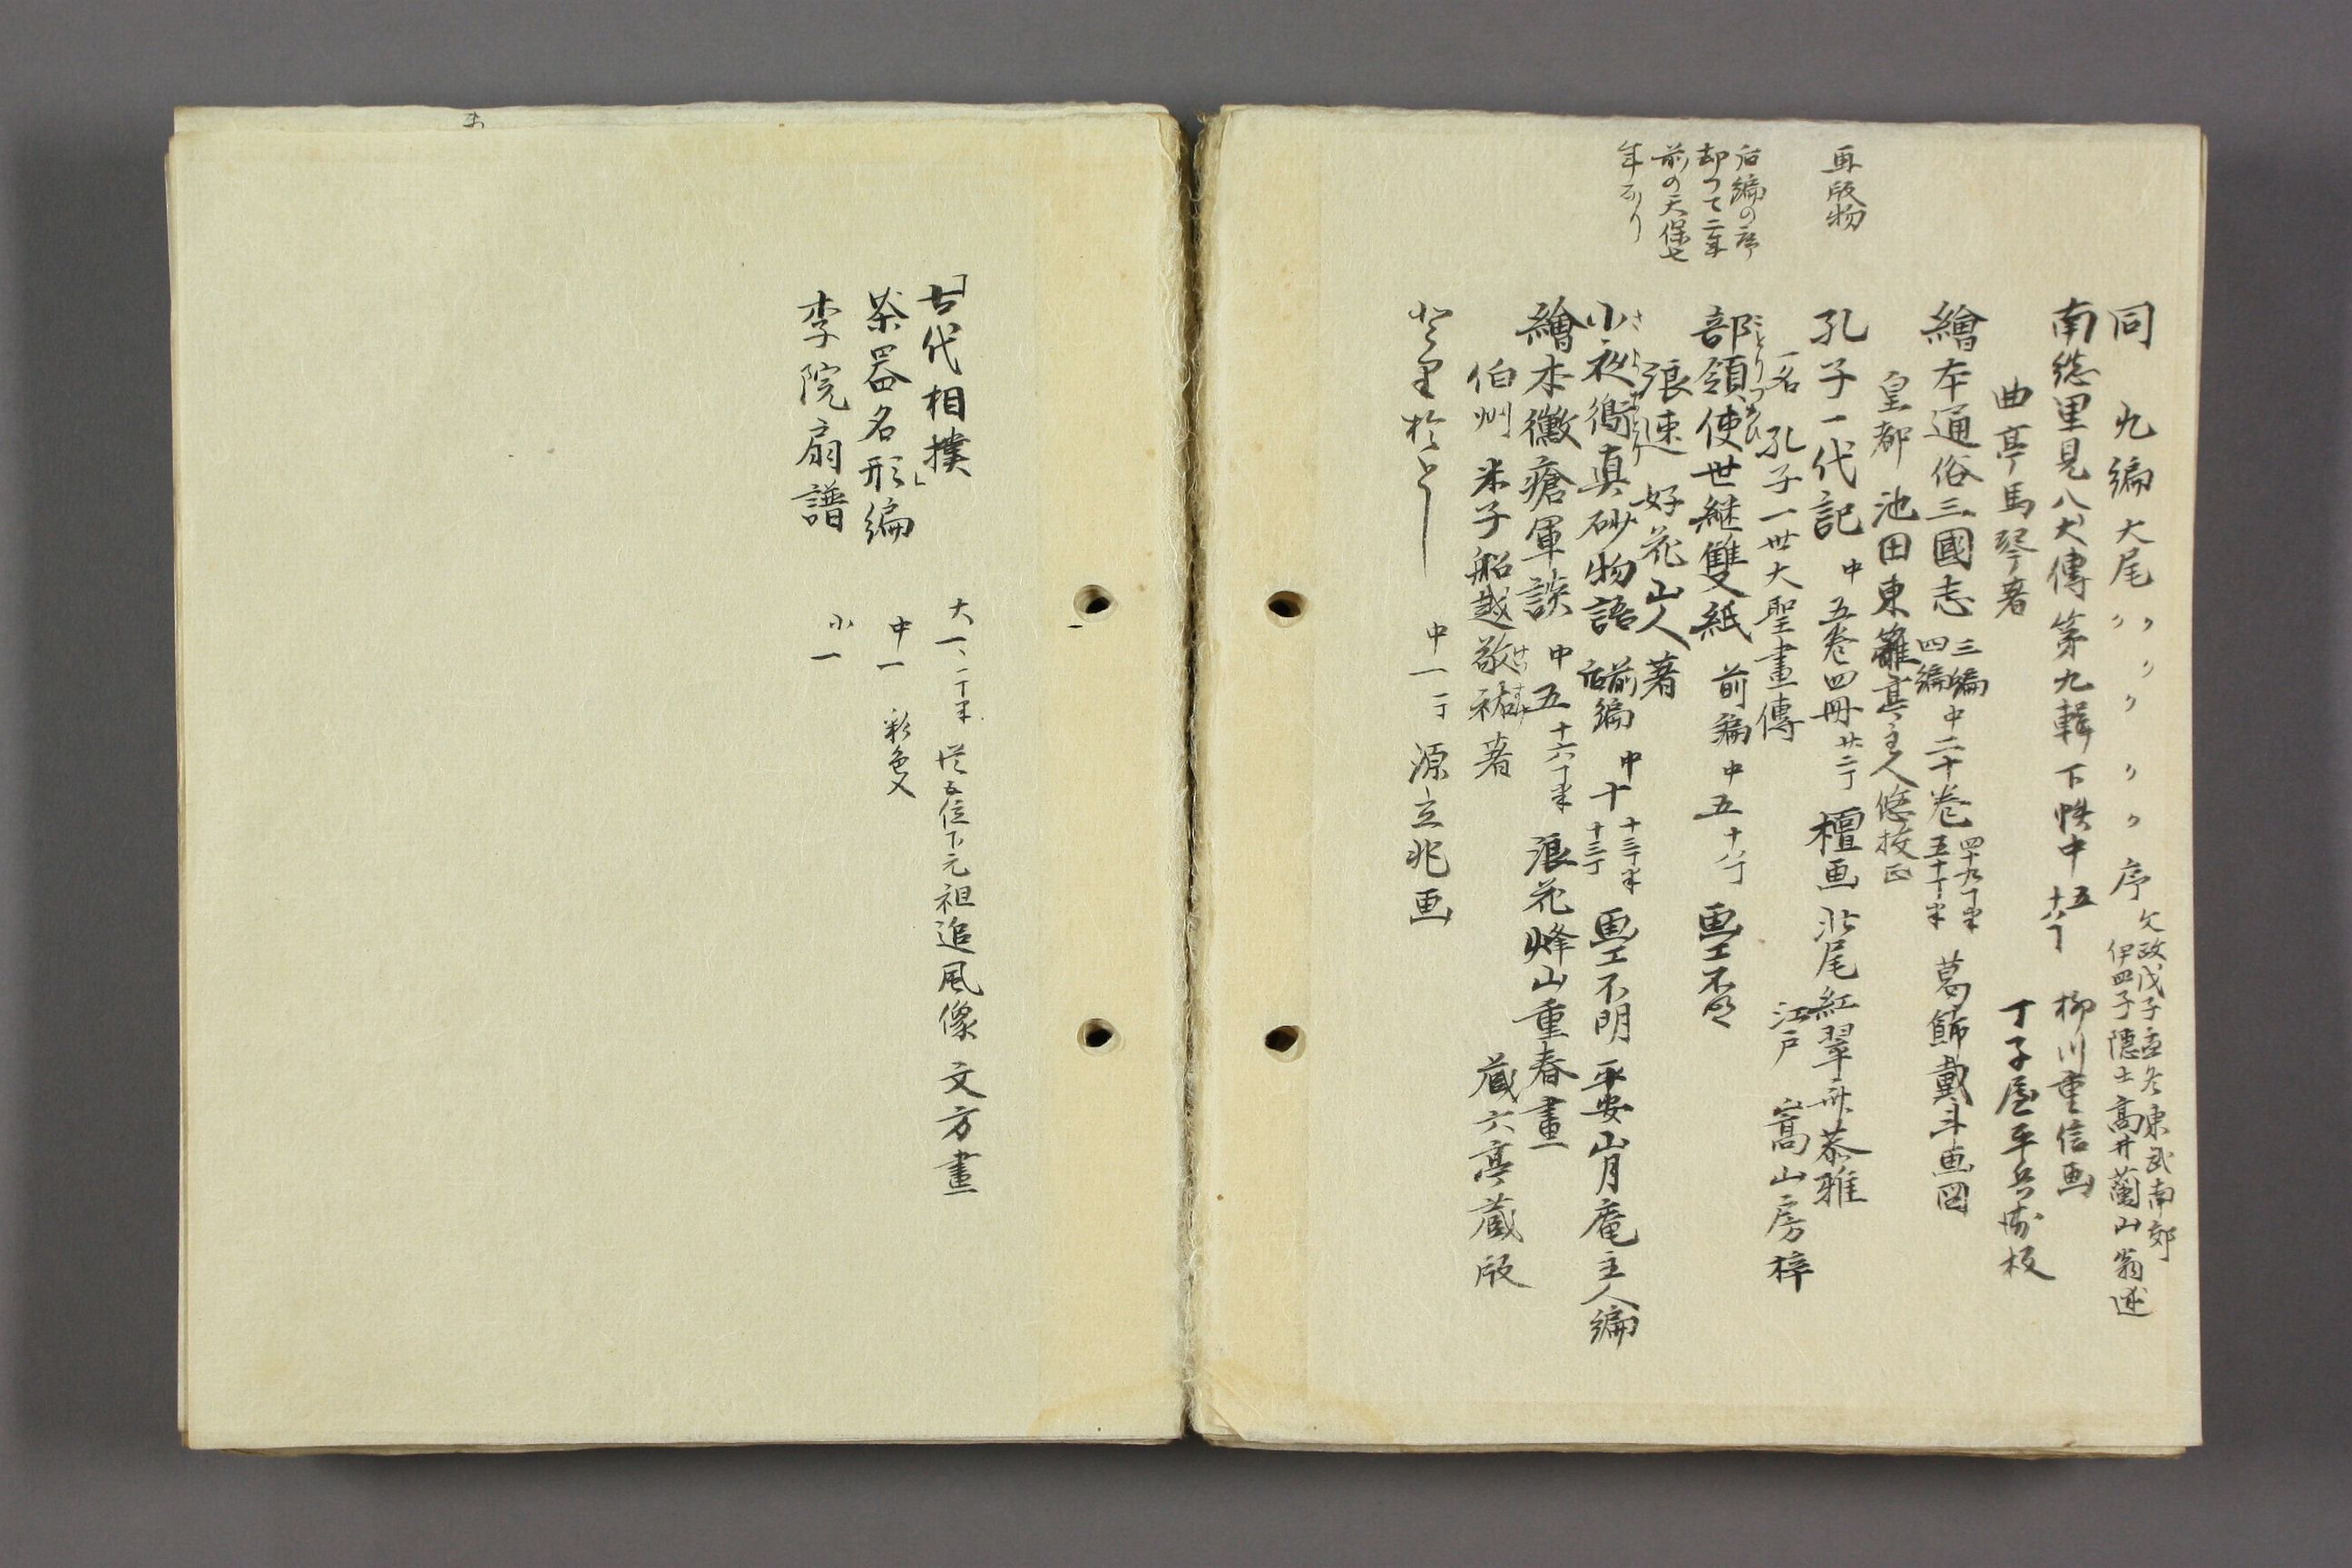 同　九編　大尾　〃　〃　〃　〃　〃　序　文政戊子孟冬東武南郊
伊皿子隠士高井蘭山翁述
南総里見八犬傳第九輯下帙中　五　十八丁　柳川重信画
曲亭馬琴著　丁子屋平兵衛板
繪本通俗三國志　三編　四編　中二十巻　四十九丁半　五十丁半　葛飾戴斗画図
皇都　池田東籬亭主人悠校正
再版物
孔子一代記　中　五巻四冊　廿二丁　檀画　北尾紅翠斎恭雅
一名　孔子一世大聖畫傳　江戸　嵩山房梓
后編の序
却つて二年
前の天保七
年なり
部領使世継雙紙　前編　中　五　十八丁　画工不明
ことりつかひ
張速　好花山人著
小夜衛真砂物語　前編　后編　中　十　十三丁半　十三丁　画工不明　平安山月庵主人編
繪本黴瘡軍談　中　五　十六丁半　浪花烽山重春畫
伯州　米子船越敬祐著　蔵六亭蔵版
中　一　一丁　源立兆画
「古代相撲」　大　一、二丁半　従五位下元祖追風像　文方畫
茶器名形編　中　一　彩色入
李院扇譜　小　一